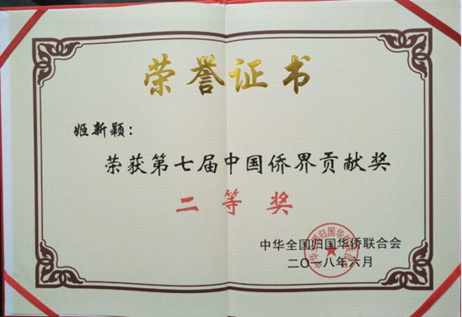 荣誉证书
姬新颖：
荣获第七届中国侨界贡献奖
二等奖
中华全国归国华侨联合会
二〇一八年六月